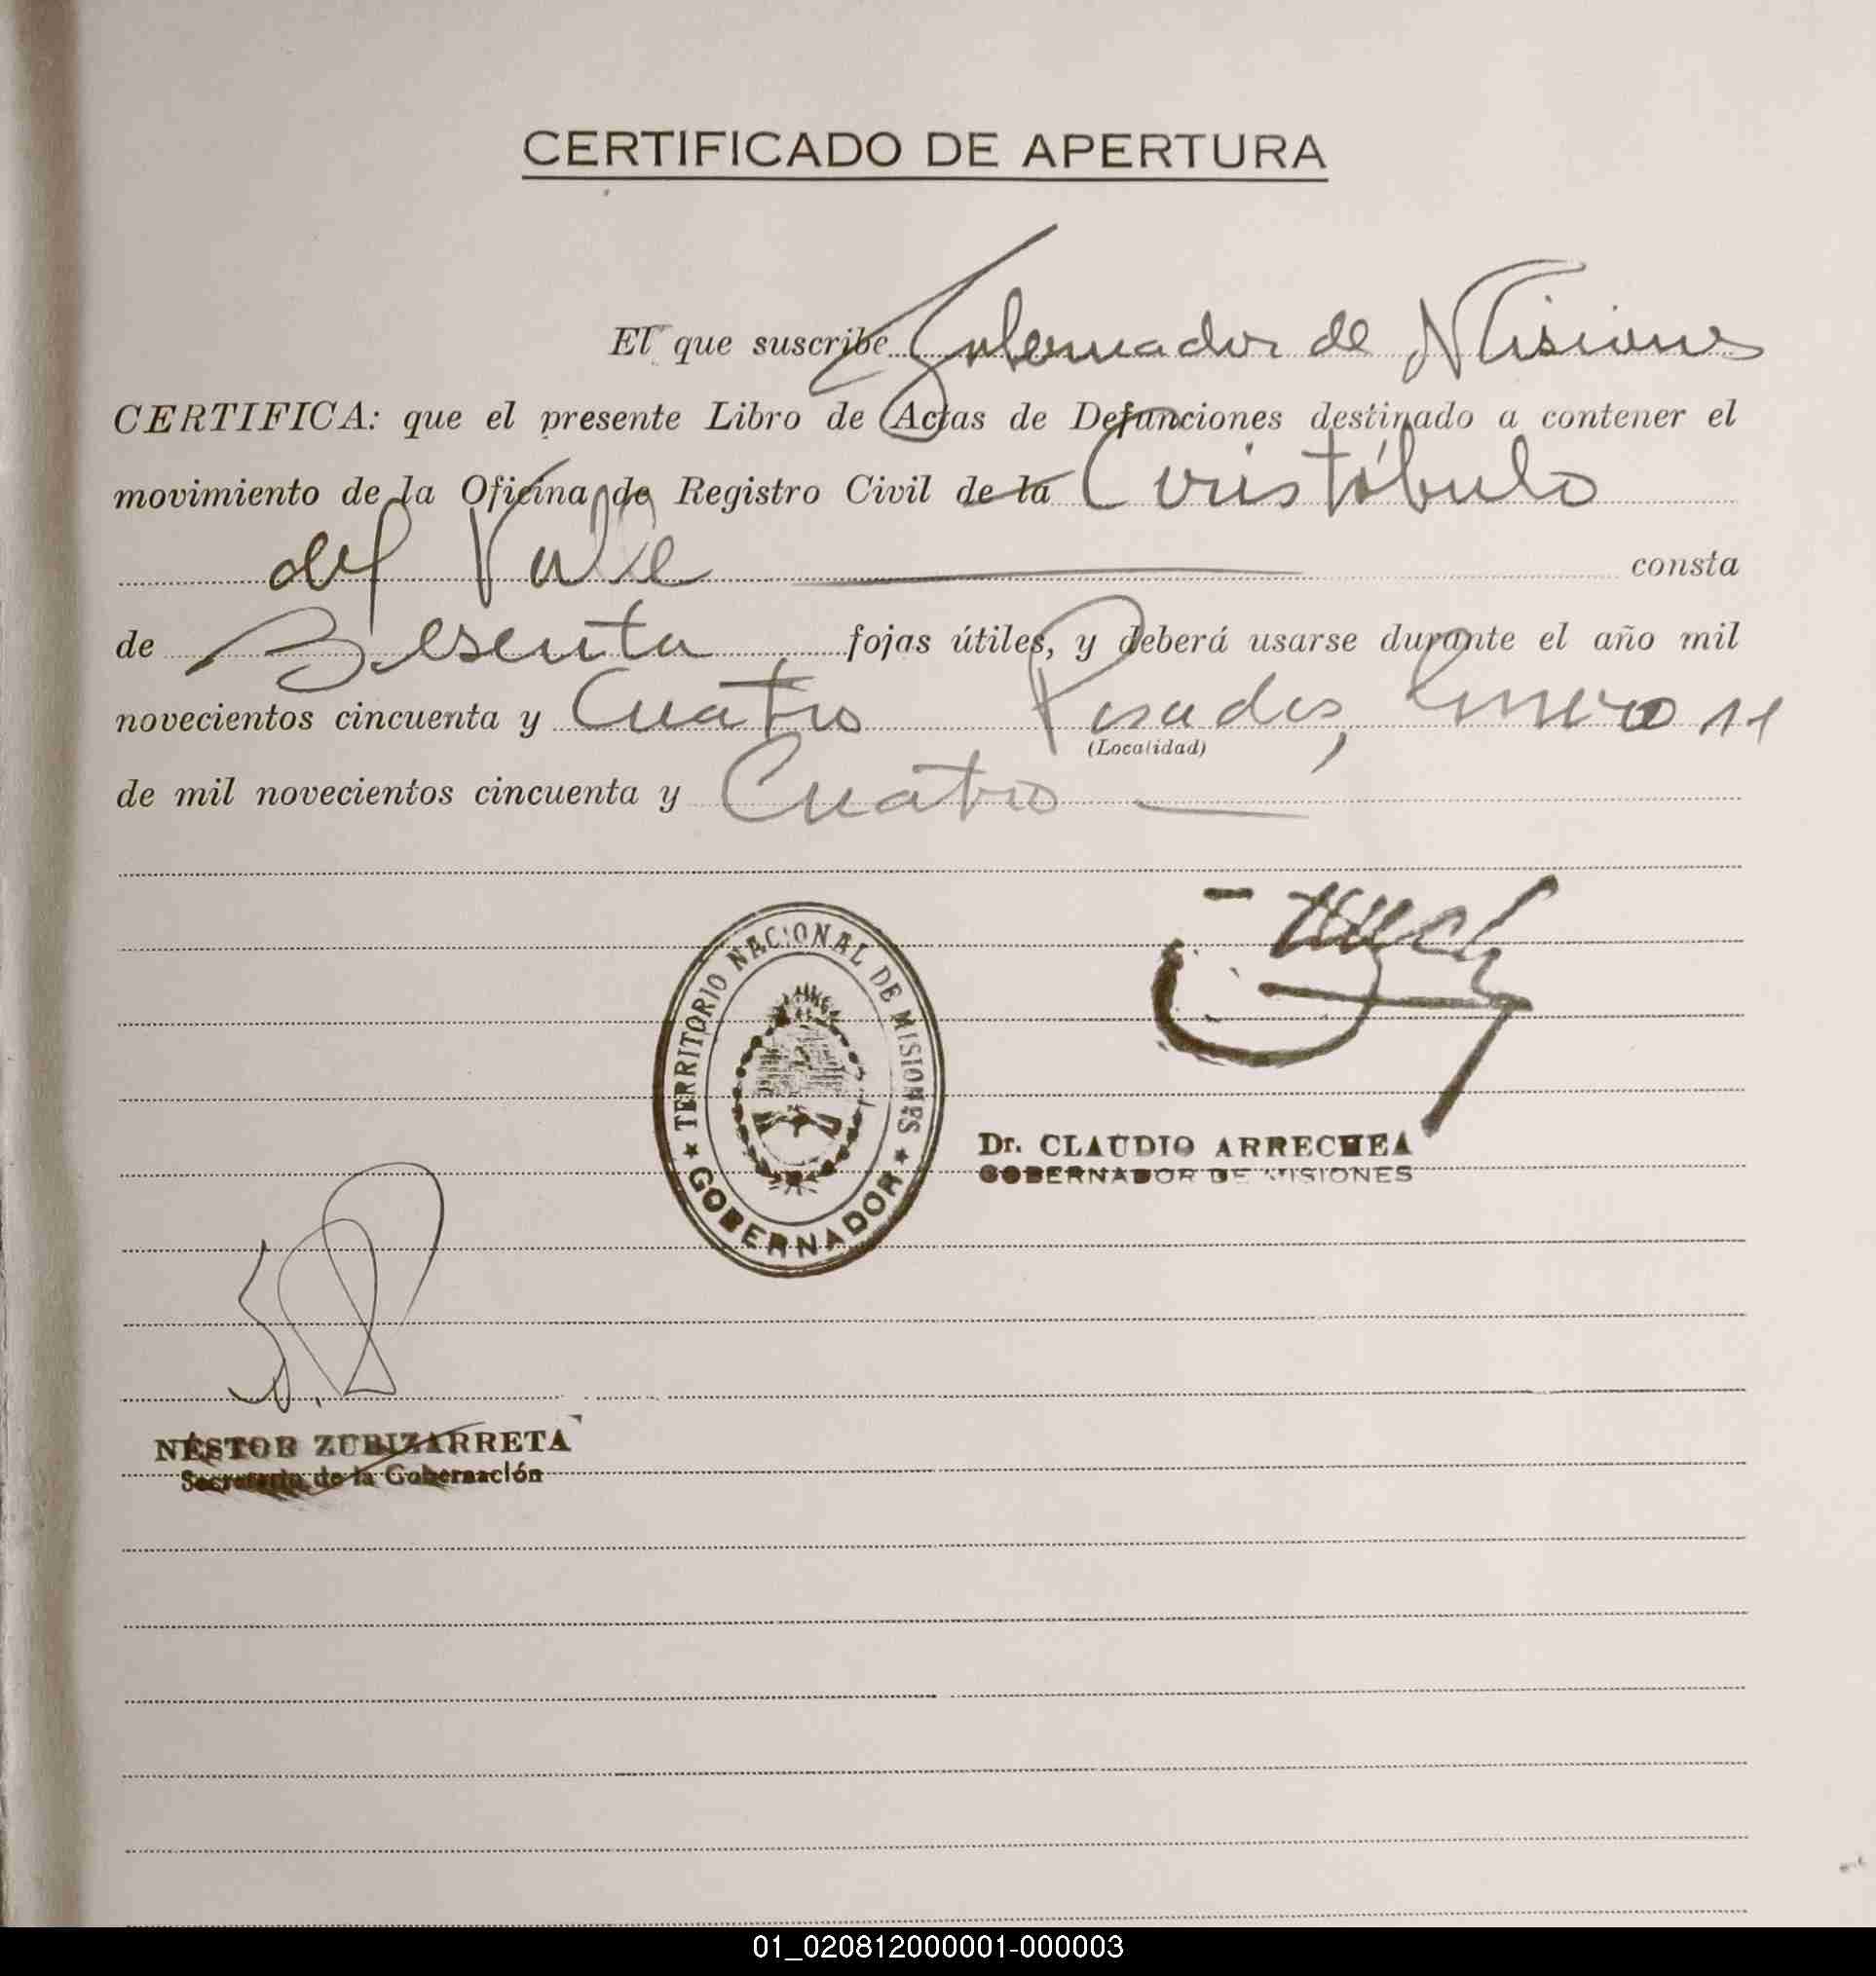 CERTIFICADO DE APERTURA
El que suscribe Gobernador de Misiones
CERTIFICA: que el presente Libro de Actas de Defunciones destinado a contener el
movimiento de la Oficina de Registro Civil de la Cristóbulo
del Valle consta
de Sesenta fojas útiles, y deberá usarse durante el año mil
novecientos cincuenta y Cuatro Posadas, Enero 14
(Localidad)
de mil novecientos cincuenta y Cuatro
TERRITORIO NACIONAL DE MISIONES
GOBERNADOR
Dr. CLAUDIO ARRECHEA
GOBERNADOR DE MISIONES
NÉSTOR ZUBIZARRETA
Secretario de la Gobernación
01_020812000001-000003